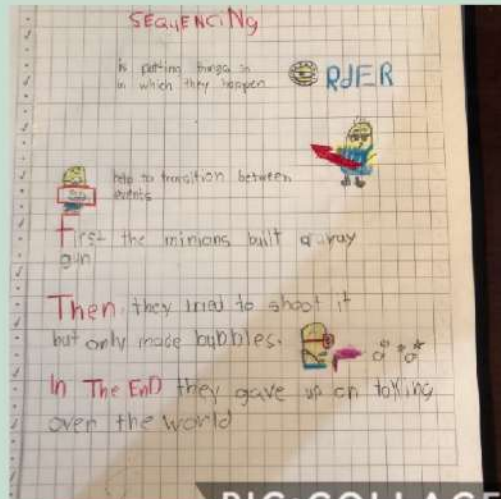 SEQUENCING
is putting things in ORDER
in which they happen
help to transition between
events
First the minions built a ray
gun
Then they tried to shoot it
but only made bubbles.
In The End they gave up on taking
over the world
PIC•COLLAGE